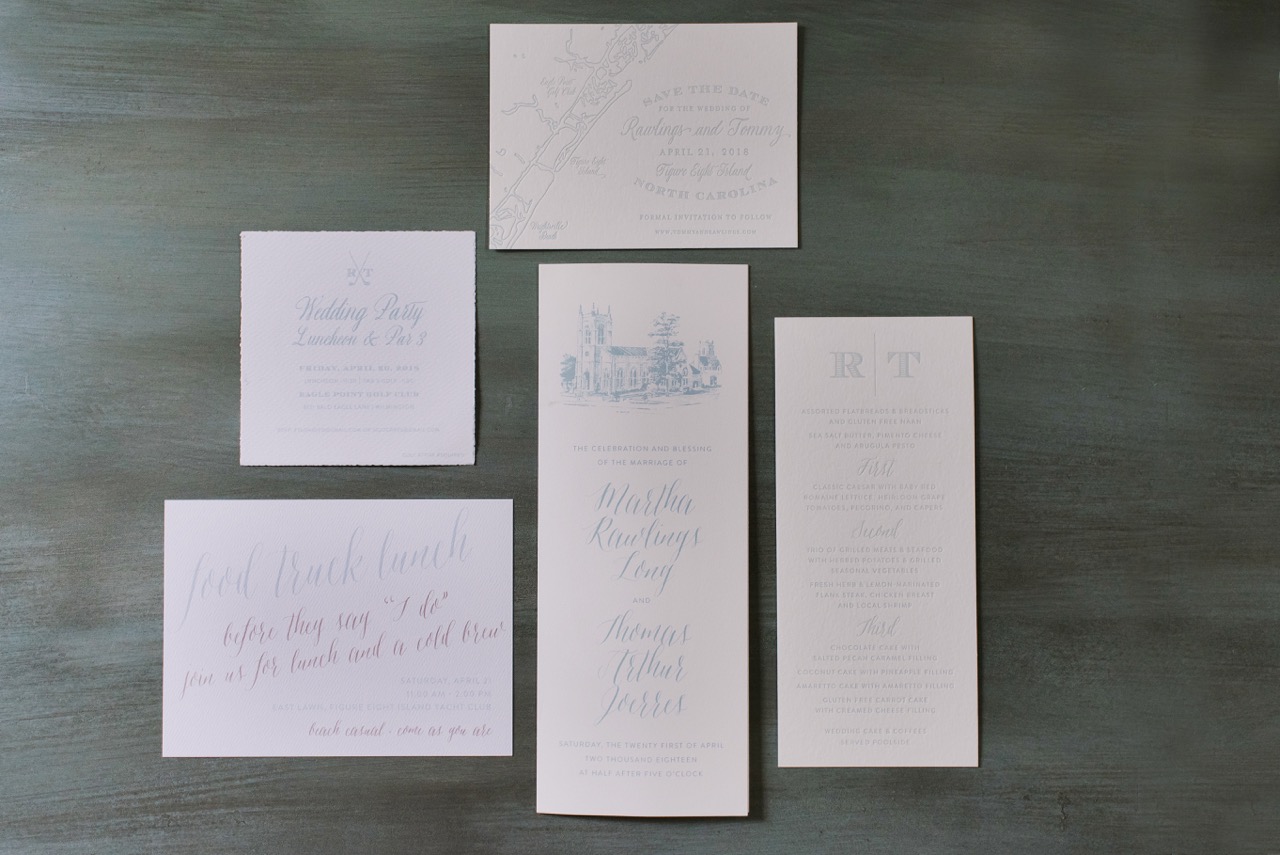 SAVE THE DATE
FOR THE WEDDING OF
Rawlings and Tommy
APRIL 21, 2018
Figure Eight Island
NORTH CAROLINA
FORMAL INVITATION TO FOLLOW
Eagle Point
Golf Club
Figure Eight
Island
R T
Wedding Party
Luncheon & Par 3
FRIDAY, APRIL 20, 2018
EAGLE POINT GOLF CLUB
food truck lunch
before they say "I do"
join us for lunch and a cold brew
SATURDAY, APRIL 21
11:00 AM - 2:00 PM
EAST LAWN, FIGURE EIGHT ISLAND YACHT CLUB
beach casual - come as you are
THE CELEBRATION AND BLESSING
OF THE MARRIAGE OF
Martha
Rawlings
Long
AND
Thomas
Arthur
Joerres
SATURDAY, THE TWENTY FIRST OF APRIL
TWO THOUSAND EIGHTEEN
AT HALF AFTER FIVE O'CLOCK
R T
ASSORTED FLATBREADS & BREADSTICKS
AND GLUTEN FREE NAAN
SEA SALT BUTTER, PIMENTO CHEESE
AND ARUGULA PESTO
First
CLASSIC CAESAR WITH BABY RED
ROMAINE LETTUCE, HEIRLOOM GRAPE
TOMATOES, PECORINO, AND CAPERS
Second
TRIO OF GRILLED MEATS & SEAFOOD
WITH HERBED POTATOES & GRILLED
SEASONAL VEGETABLES
FRESH HERB & LEMON MARINATED
FLANK STEAK, CHICKEN BREAST
AND LOCAL SHRIMP
Third
CHOCOLATE CAKE WITH
SALTED PECAN CARAMEL FILLING
COCONUT CAKE WITH PINEAPPLE FILLING
AMARETTO CAKE WITH AMARETTO FILLING
GLUTEN FREE CARROT CAKE
WITH CREAMED CHEESE FILLING
WEDDING CAKE & COFFEES
SERVED POOLSIDE